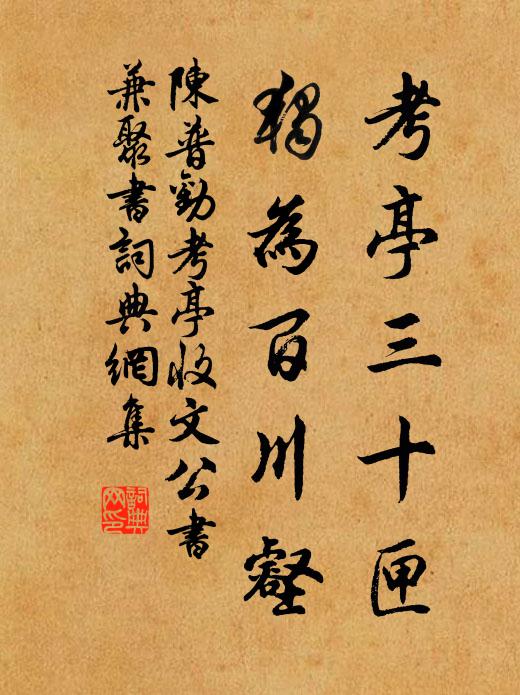 考亭三十匣
獨為百川壑
陳普勸考亭收文公書
兼聚書詞典網集
詞典网印